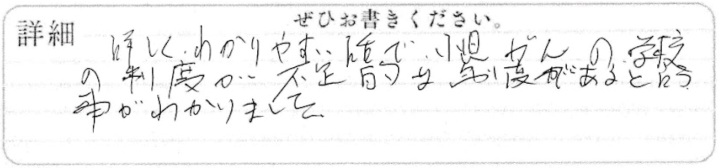 ぜひお書きください。
詳細
詳しく、わかりやすい話で、小児がんの学校
の制度が不足的な制度があると言う
事がわかりました。